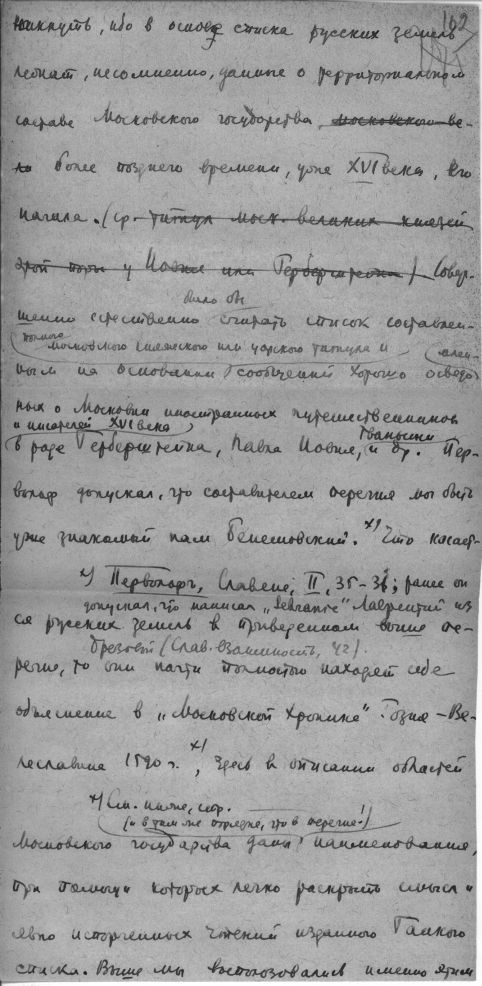 162
никнуть, ибо в основе списка русских земель
лежат, несомненно, данные о территориальном
составе Московского государства, московского ве-
ли более позднего времени, уже XVI века, его
начала. (ср. титул моск. великих князей
этой поры у Иовия или Герберштейна) Совер-
было бы
шенно естественно считать список составлен-
полного
московского княжеского или царского титула и
ным на основании сообщений хорошо осведо-
млен-
ных о Московии иностранных путешественников
и писателей XVI века
Гваньини
в роде Герберштейна, Павла Иовия, и др. Пер-
вольф допускал, что составителем перечня мог быть
уже знакомый нам Бенешовский. х) Что касает-
х) Первольф, Славяне, II, 35-36; ранее он
допускал, что написал „ Лаврентий из
ся русских земель в приведенном выше пе-
Брезовы (Слав. взаимность, 42).
речне, то они почти полностью находят себе
объяснение в „Московской Хронике“ Гозия-Ве-
леславина 1590 г. х), здесь в описании областей
х) См. ниже, стр.
(и в том же порядке, что в перечне!)
Московского государства даны наименования,
при помощи которых легко раскрыть смысл и
явно испорченных чтений изданного Ганкого
списка. Выше мы воспользовались именно этим